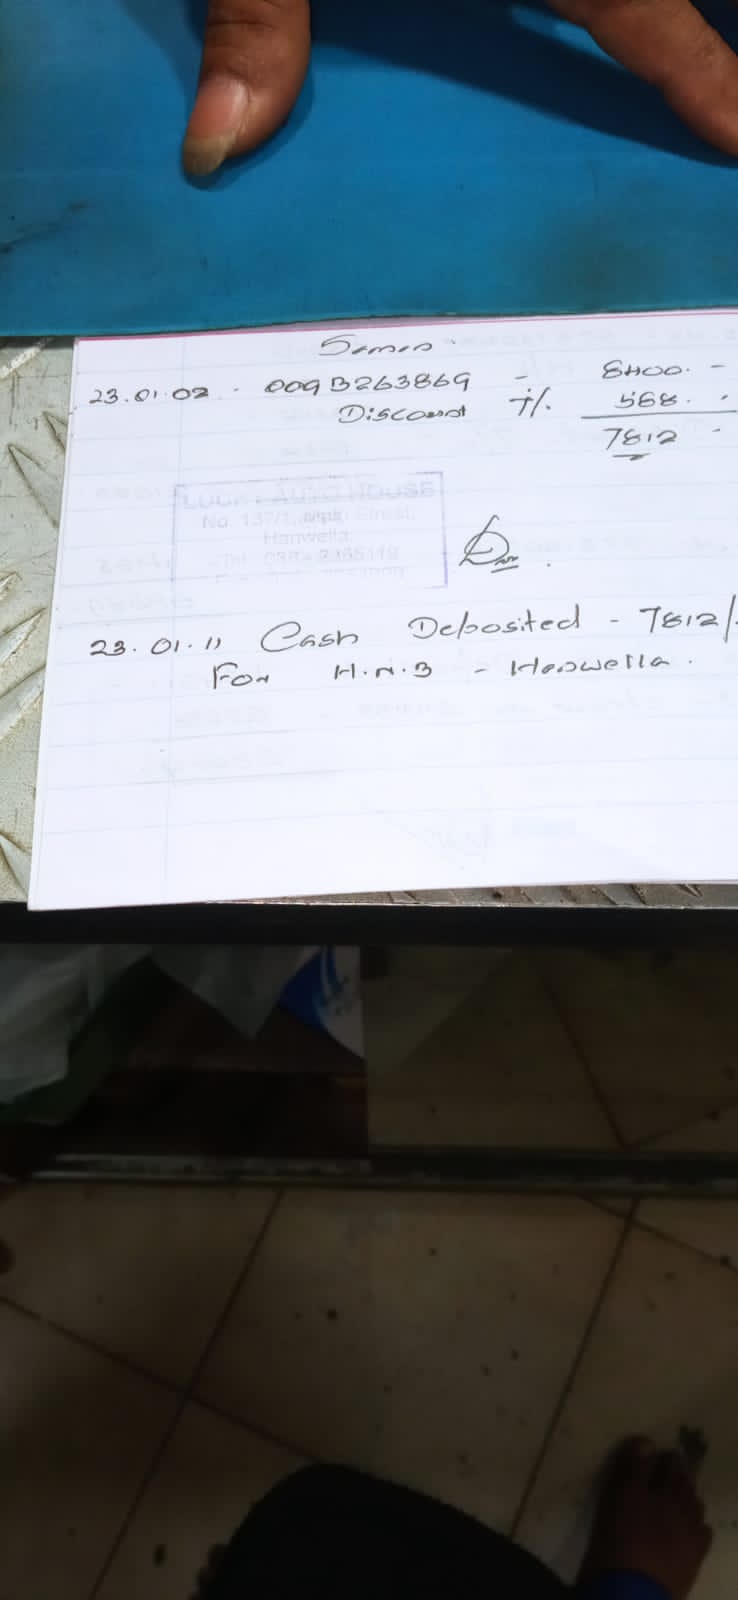 Saman
23.01.02 - 009B263869 - 8400. -
Discount 7%. 588. -
7812 -
LUCKY AUTO HOUSE
No. 137/1, Street,
Hanwella.
23.01.11 Cash Deposited - 7812/-
For H.N.B - Hanwella.